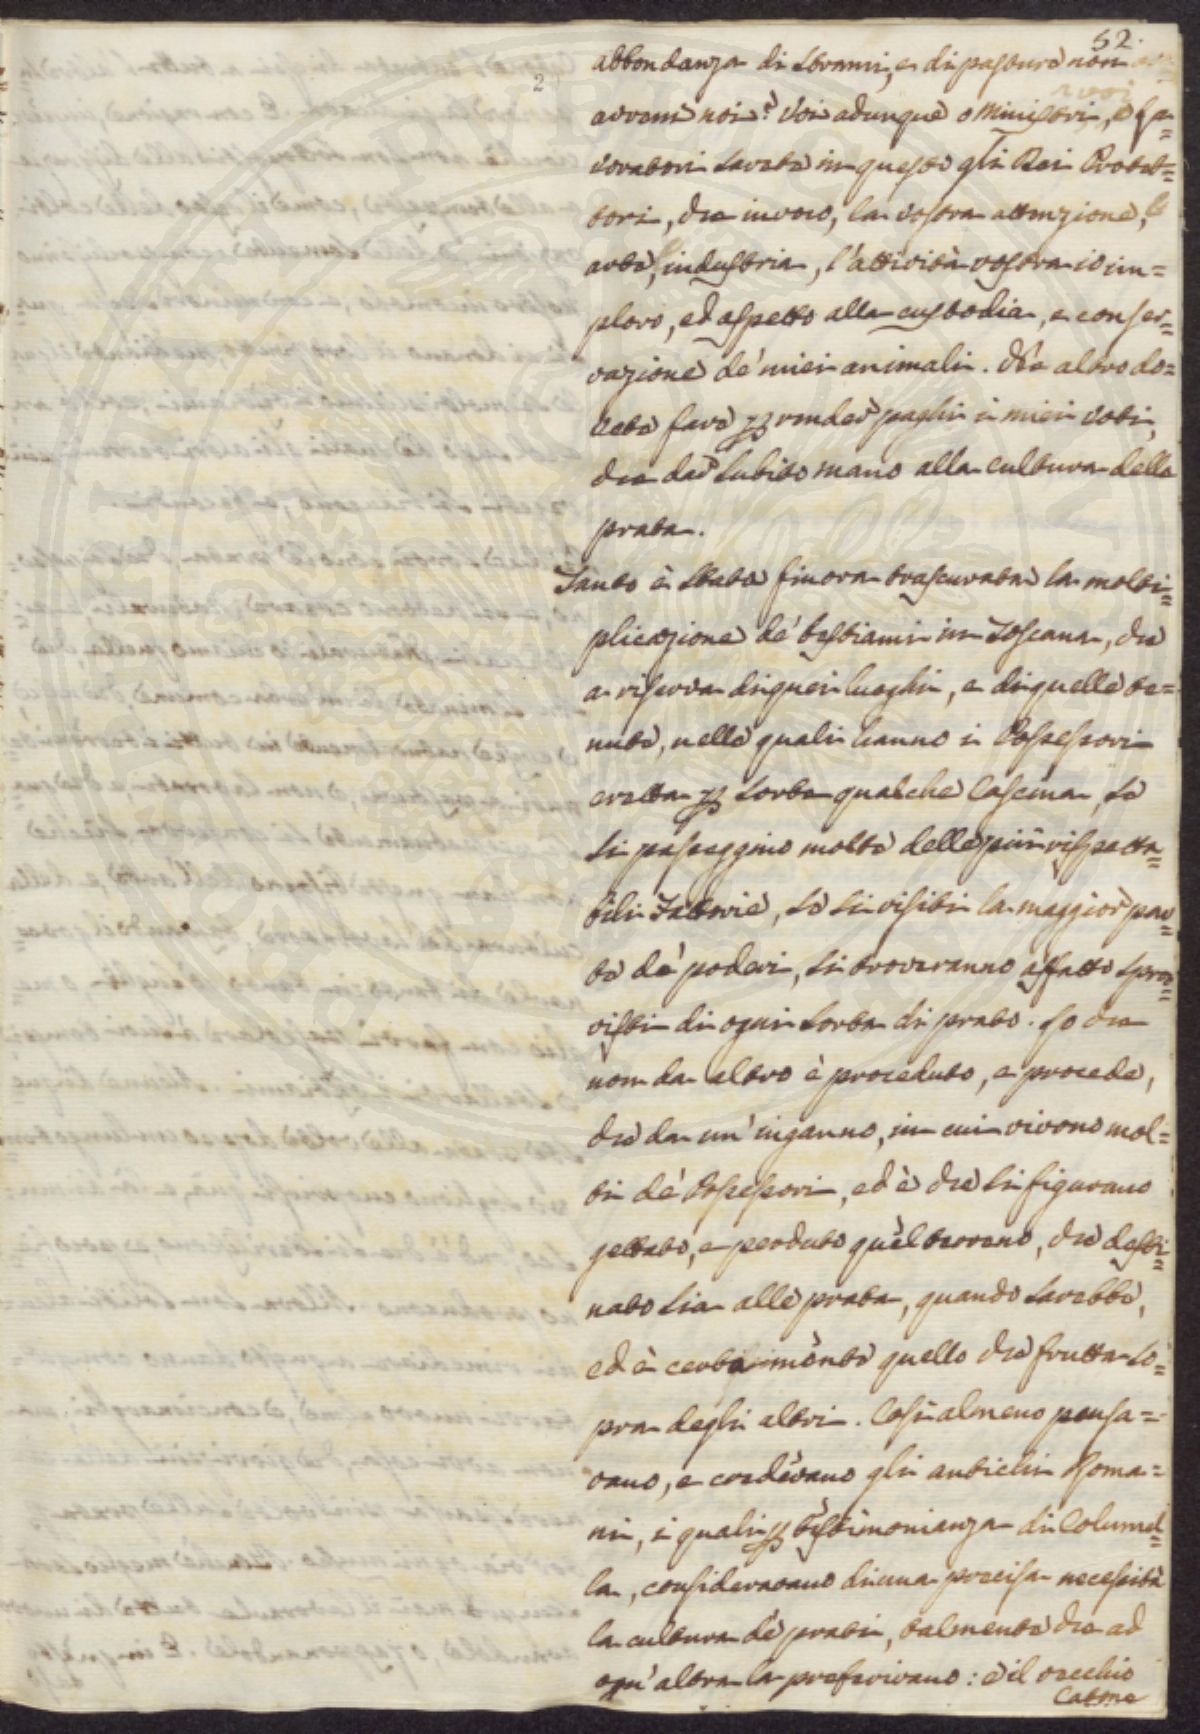 52.
2
abbondanza di strami, e di pasture non
avremo noi? Voi adunque o Ministri, e la=
voratori sarete in questo gli Dei Protet=
tori, che invoco, la vostra attenzione, l'
arte, l'industria, l'attività vostra io im=
ploro, ed aspetto alla custodia, e conser=
vazione de' miei animali. Ne altro do=
vete fare p. render paghi i miei voti,
che dar subito mano alla cultura delle
prata.
Tanto è stata finora trascurata la molti=
plicazione de' bestiami in Toscana, che
a riserva di quei luoghi, e di quelle te=
nute, nelle quali hanno i Possessori
eretta p. sorte qualche Cascina, se
si passeggino molte delle più rispetta=
bili Fattorie, se si visiti la maggior par=
te de' poderi, si troveranno affatto sprov=
visti di ogni sorta di prato. So che
non da altro è proceduto, e procede,
che da un' inganno, in cui vivono mol=
ti de' Possessori, ed è che si figurano
gettato, e perduto quel terreno, che desti=
nato sia alle prata, quando sarebbe,
ed è certamente quello che frutta so=
pra degli altri. Così almeno pensa=
vano, e credevano gli antichi Roma=
ni, i quali p. testimonianza di Columel=
la, consideravano di una precisa necessità
la cultura de' prati, talmente che ad
ogn' altra la preferivano: e il vecchio
Catone